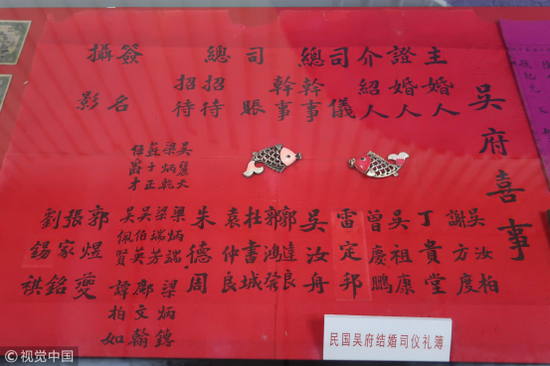 吳府喜事
主婚人
證婚人
介紹人
司儀
總幹事
幹事
司賬
總招待
招待
簽名
攝影
吳汝柏
謝方度
丁貴堂
吳祖康
曾慶鵬
雷定邦
吳汝舟
郭達良
郭鴻
杜書城
袁仲良
朱德周
梁炳端
梁瑞芳
吳伯英
吳佩賢
梁炳
鄺文翰
譚柏如
梁炳乾
士正
任富才
郭煜夔
張家銘
劉錫祺
民国吴府结婚司仪礼簿
视觉中国